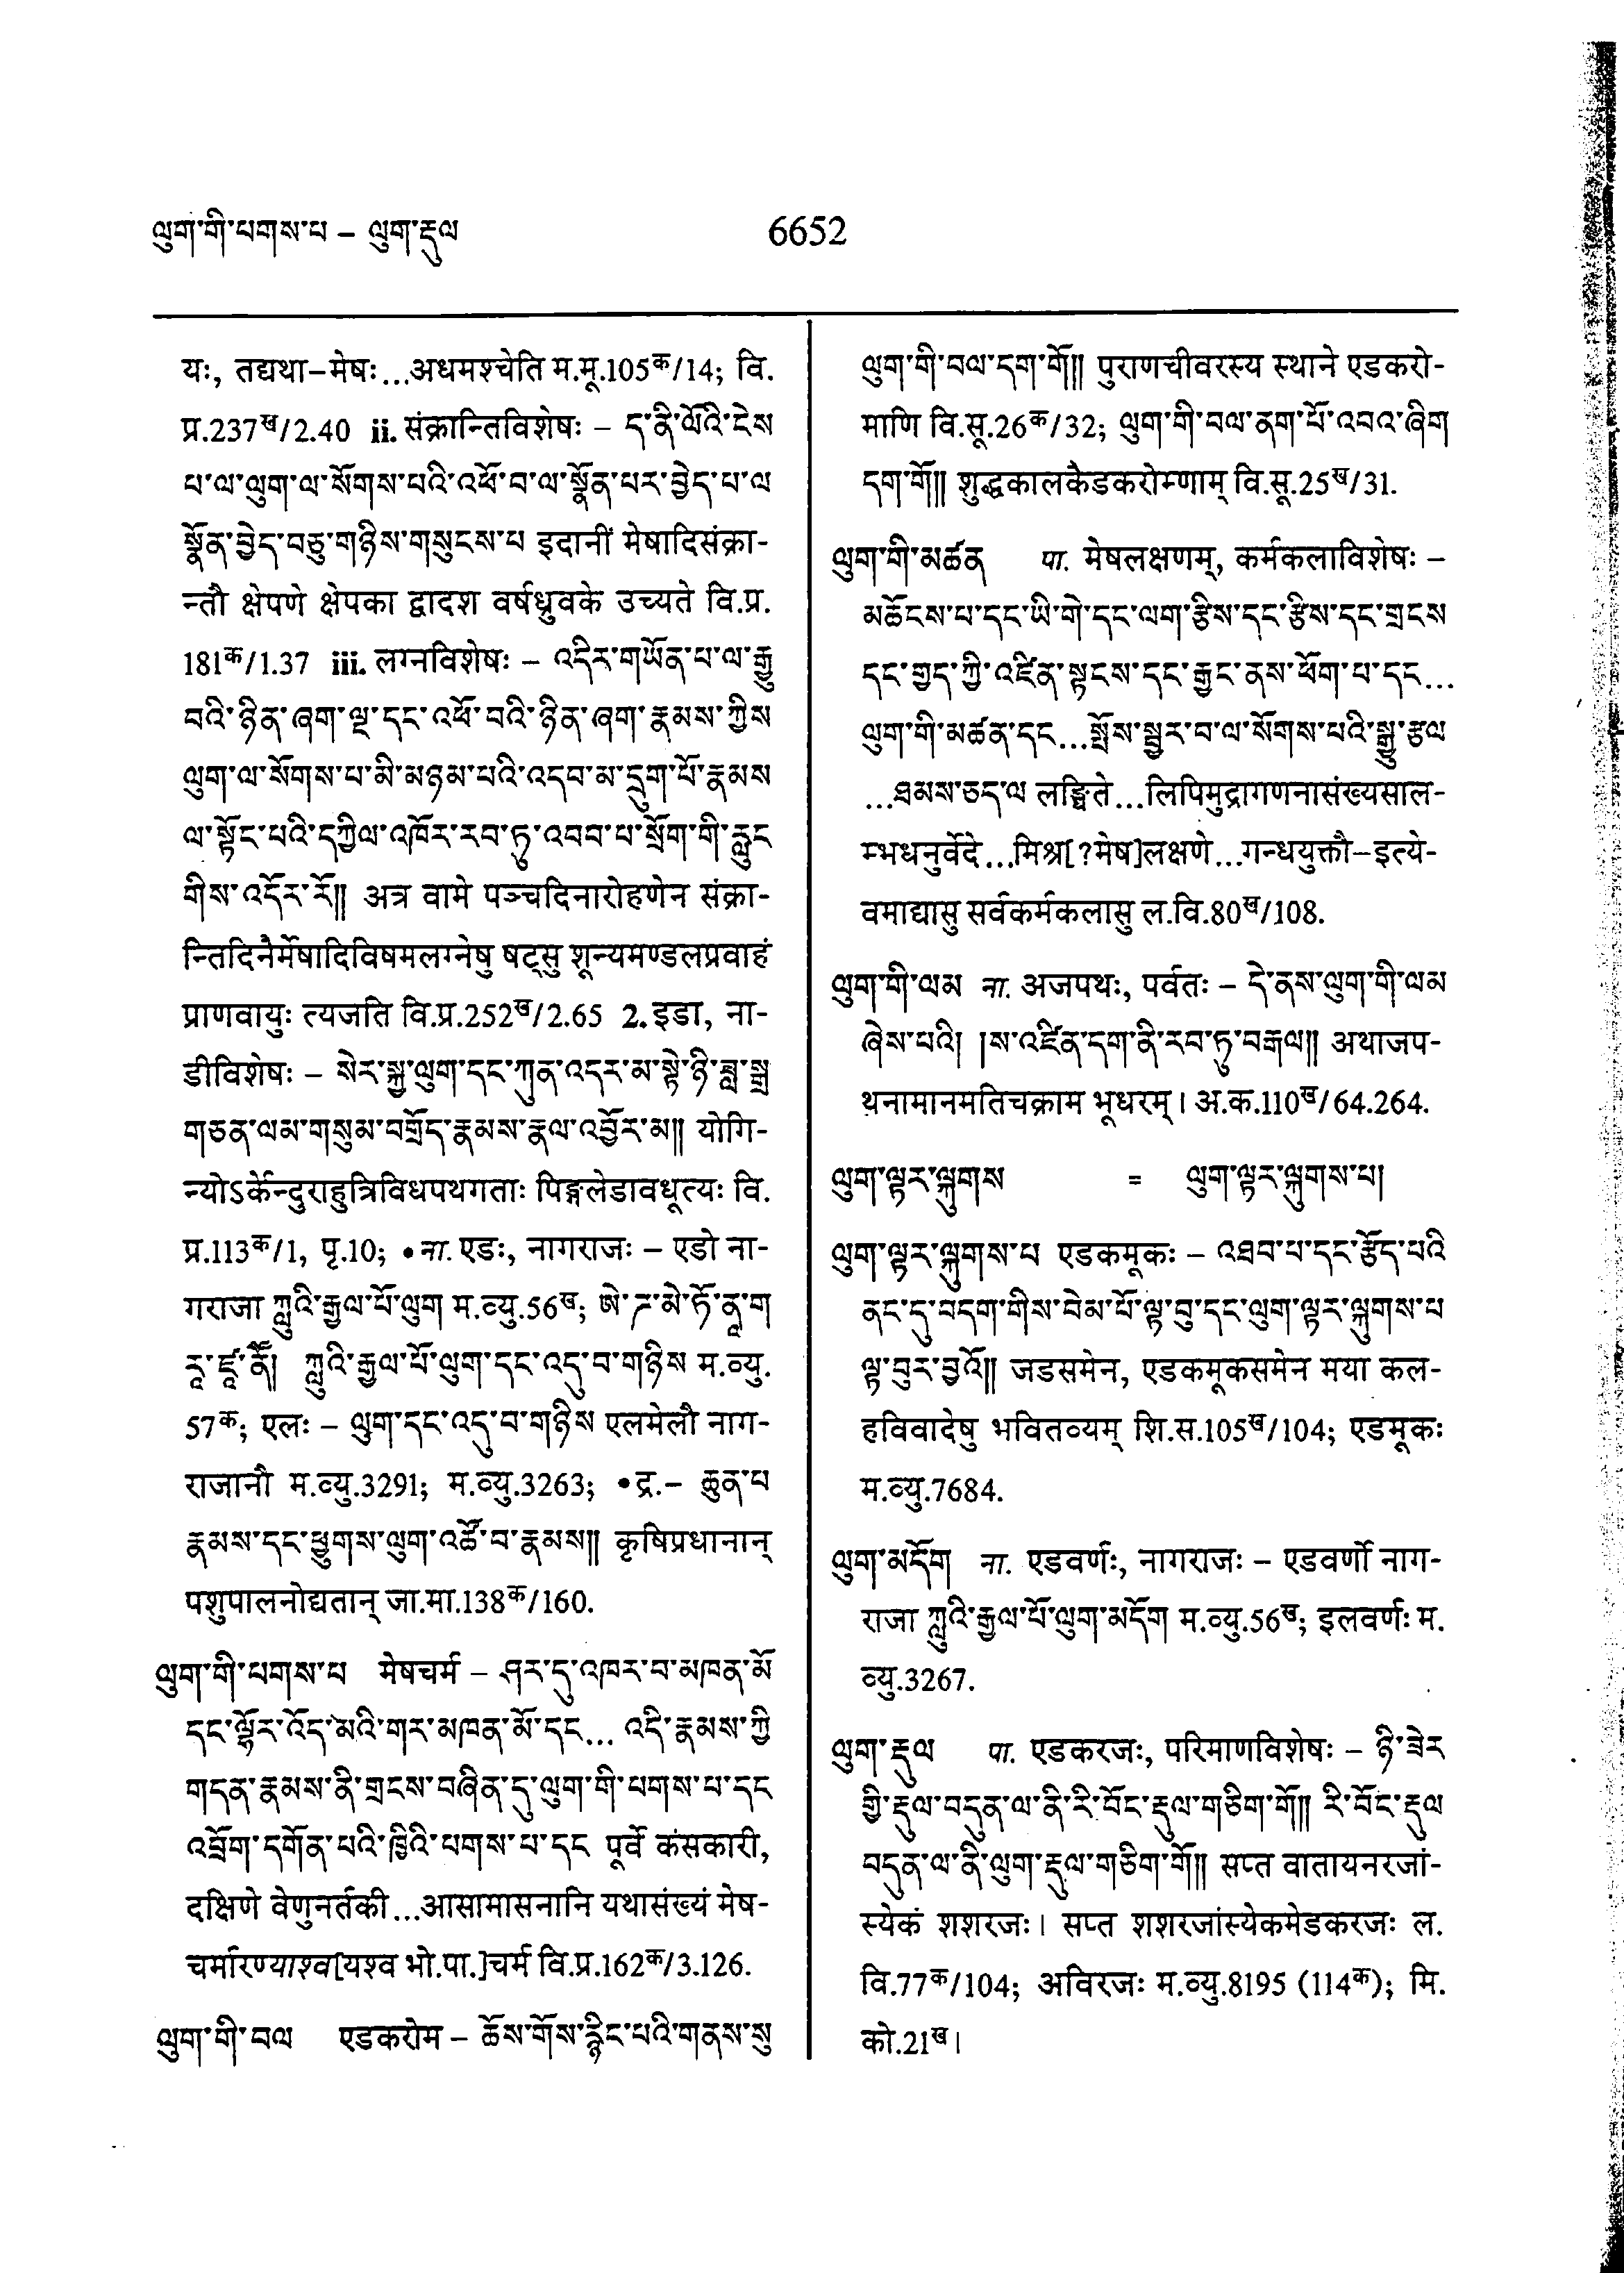 ལུག་གི་པགས་པ – ལུག་རྡུལ
6652
यः, तद्यथा–मेषः...अधमश्चेति म.मू.105क/14; वि.
प्र.237ख/2.40 ii. संक्रान्तिविशेषः – ད་ནི་ལོའི་ངེས
པ་ལ་ལུག་ལ་སོགས་པའི་འཕོ་བ་ལ་སྣོན་པར་བྱེད་པ་ལ
སྣོན་བྱེད་བཅུ་གཉིས་གསུངས་པ इदानीं मेषादिसंक्रा-
न्तौ क्षेपणे क्षेपका द्वादश वर्षध्रुवके उच्यते वि.प्र.
181क/1.37 iii. लग्नविशेषः – འདིར་གཡོན་པ་ལ་རྒྱུ
བའི་ཉིན་ཞག་ལྔ་དང་འཕོ་བའི་ཉིན་ཞག་རྣམས་ཀྱིས
ལུག་ལ་སོགས་པ་མི་མཉམ་པའི་འདབ་མ་དྲུག་པོ་རྣམས
ལ་སྟོང་པའི་དཀྱིལ་འཁོར་རབ་ཏུ་འབབ་པ་སྲོག་གི་རླུང
གིས་འདོར་རོ།། अत्र वामे पञ्चदिनारोहणेन संक्रा-
न्तिदिनैर्मेषादिविषमलग्नेषु षट्सु शून्यमण्डलप्रवाहं
प्राणवायुः त्यजति वि.प्र.252ख/2.65 2. इडा, ना-
डीविशेषः – སེར་སྐྱ་ལུག་དང་ཀུན་འདར་མ་སྟེ་ཉི་ཟླ་སྒྲ
གཅན་ལམ་གསུམ་བགྲོད་རྣམས་རྣལ་འབྱོར་མ།། योगि-
न्योऽर्केन्दुराहुत्रिविधपथगताः पिङ्गलेडावधूत्यः वि.
प्र.113क/1, पृ.10; • ना. एडः, नागराजः – एडो ना-
गराजा ཀླུའི་རྒྱལ་པོ་ལུག म.व्यु.56ख; ཨེ་ཌ་མེ་ཏོ་ནཱ་ག
རཱ་ཛཱ་ནཽ། ཀླུའི་རྒྱལ་པོ་ལུག་དང་འདུ་བ་གཉིས म.व्यु.
57क; एलः – ལུག་དང་འདུ་བ་གཉིས एलमेलौ नाग-
राजानौ म.व्यु.3291; म.व्यु.3263; • द्र.– ཆུན་པ
རྣམས་དང་ཕྱུགས་ལུག་འཚོ་བ་རྣམས།། कृषिप्रधानान्
पशुपालनोद्यतान् जा.मा.138क/160.
ལུག་གི་པགས་པ मेषचर्म – ཤར་དུ་འཁར་བ་མཁན་མོ
དང་ལྷོར་འོད་མའི་གར་མཁན་མོ་དང... འདི་རྣམས་ཀྱི
གདན་རྣམས་ནི་གྲངས་བཞིན་དུ་ལུག་གི་པགས་པ་དང
འབྲོག་དགོན་པའི་ཁྱིའི་པགས་པ་དང पूर्वे कंसकारी,
दक्षिणे वेणुनर्तकी...आसामासनानि यथासंख्यं मेष-
चर्मारण्याश्व[यश्व भो.पा.]चर्म वि.प्र.162क/3.126.
ལུག་གི་བལ एडकरोम – ཆོས་གོས་རྙིང་པའི་གནས་སུ
ལུག་གི་བལ་དག་གོ།། पुराणचीवरस्य स्थाने एडकरो-
माणि वि.सू.26क/32; ལུག་གི་བལ་ནག་པོ་འབའ་ཞིག
དག་གོ།། शुद्धकालकैडकरोम्णाम् वि.सू.25ख/31.
ལུག་གི་མཚན पा. मेषलक्षणम्, कर्मकलाविशेषः –
མཆོངས་པ་དང་ཡི་གེ་དང་ལག་རྩིས་དང་རྩིས་དང་གྲངས
དང་གྱད་ཀྱི་འཛིན་སྟངས་དང་རྒྱང་ནས་ཕོག་པ་དང...
ལུག་གི་མཚན་དང...སྤོས་སྦྱར་བ་ལ་སོགས་པའི་སྒྱུ་རྩལ
...ཐམས་ཅད་ལ लङ्घिते...लिपिमुद्रागणनासंख्यसाल-
म्भधनुर्वेदे...मिश्र[?मेष]लक्षणे...गन्धयुक्तौ–इत्ये-
वमाद्यासु सर्वकर्मकलासु ल.वि.80ख/108.
ལུག་གི་ལམ ना. अजपथः, पर्वतः – དེ་ནས་ལུག་གི་ལམ
ཞེས་པའི། །ས་འཛིན་དག་ནི་རབ་ཏུ་བརྒལ།། अथाजप-
थनामानमतिचक्राम भूधरम्। अ.क.110ख/64.264.
ལུག་ལྟར་ལྐུགས = ལུག་ལྟར་ལྐུགས་པ།
ལུག་ལྟར་ལྐུགས་པ एडकमूकः – འཐབ་པ་དང་རྩོད་པའི
ནང་དུ་བདག་གིས་བེམ་པོ་ལྟ་བུ་དང་ལུག་ལྟར་ལྐུགས་པ
ལྟ་བུར་བྱའོ།། जडसमेन, एडकमूकसमेन मया कल-
हविवादेषु भवितव्यम् शि.स.105ख/104; एडमूकः
म.व्यु.7684.
ལུག་མདོག ना. एडवर्णः, नागराजः – एडवर्णो नाग-
राजा ཀླུའི་རྒྱལ་པོ་ལུག་མདོག म.व्यु.56ख; इलवर्णः म.
व्यु.3267.
ལུག་རྡུལ पा. एडकरजः, परिमाणविशेषः – ཉི་ཟེར
གྱི་རྡུལ་བདུན་ལ་ནི་རི་བོང་རྡུལ་གཅིག་གོ།། རི་བོང་རྡུལ
བདུན་ལ་ནི་ལུག་རྡུལ་གཅིག་གོ།། सप्त वातायनरजां-
स्येकं शशरजः। सप्त शशरजांस्येकमेडकरजः ल.
वि.77क/104; अविरजः म.व्यु.8195 (114क); मि.
को.21ख।